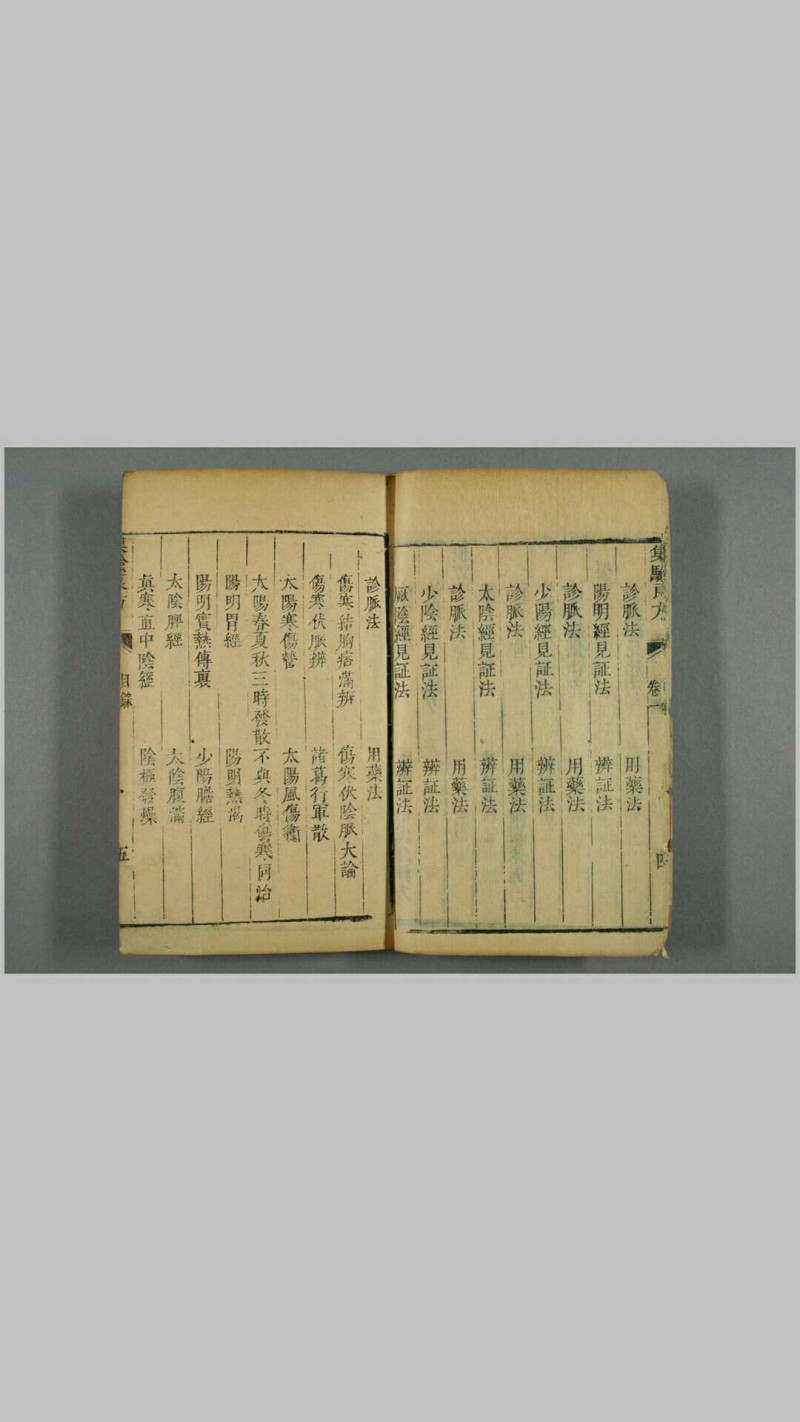 集驗良方 卷一 四
診脈法 用藥法
陽明經見証法 辨証法
診脈法 用藥法
少陽經見証法 辨証法
診脈法 用藥法
太陰經見証法 辨証法
診脈法 用藥法
少陰經見証法 辨証法
厥陰經見証法 辨証法
診脈法 用藥法
傷寒結胸痞滿辨 傷寒伏陰脈大論
傷寒伏脈辨 諸葛行軍散
太陽寒傷營 太陽風傷衞
太陽春夏秋三時發散 不與冬時傷寒同治
陽明胃經 陽明熱渴
陽明實熱傳裏 少陽膽經
太陰脾經 太陰腹滿
真寒直中陰經 陰極發燥
目錄 五